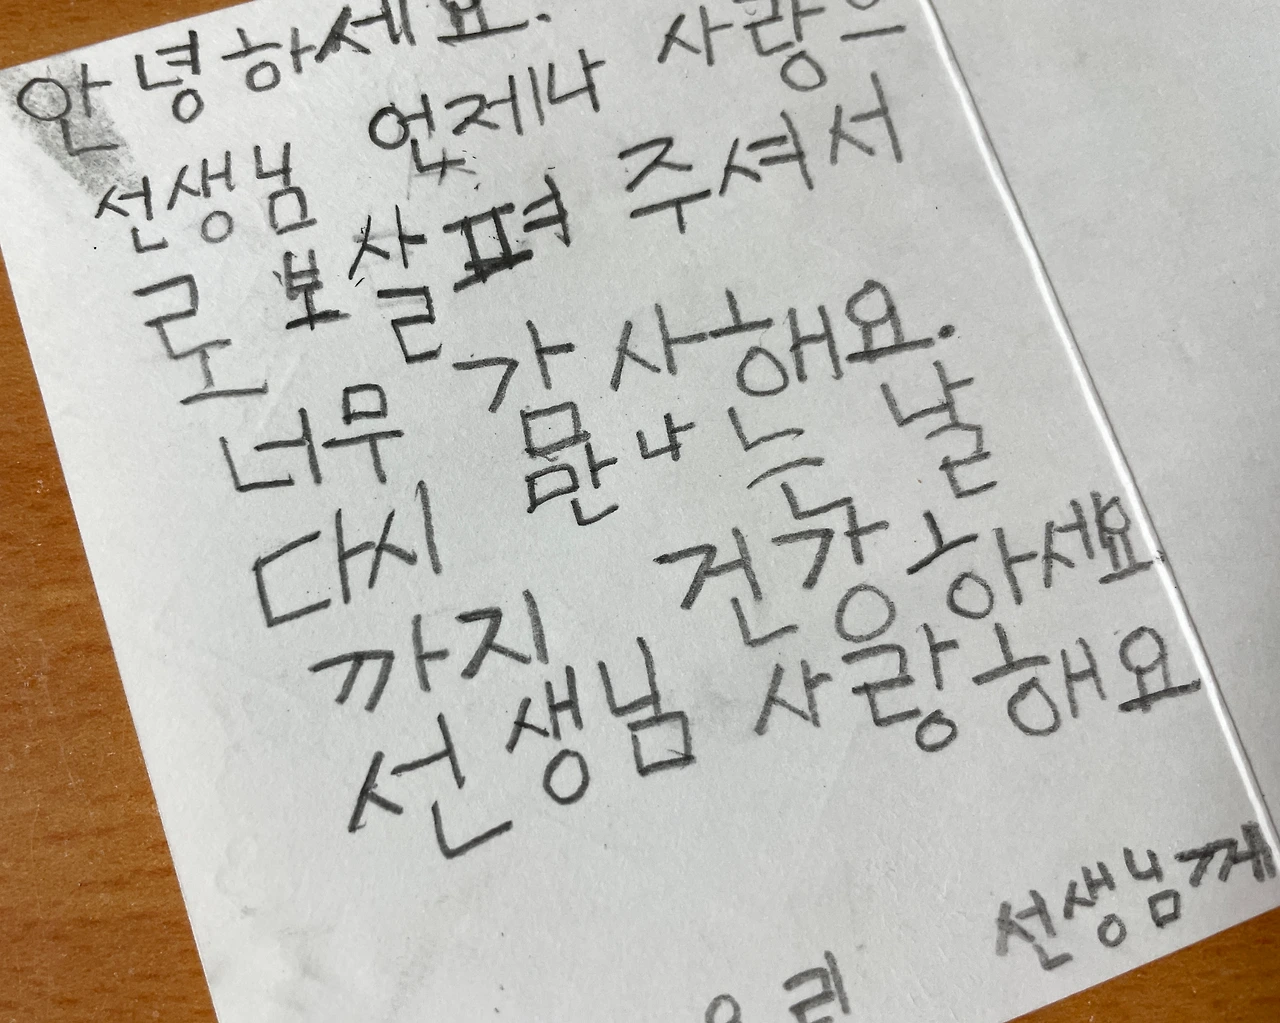 안녕하세요.
선생님 언제나 사랑으
로 보살펴 주셔서
너무 감사해요.
다시 만나는 날
까지 건강하세요
선생님 사랑해요
선생님께
우리